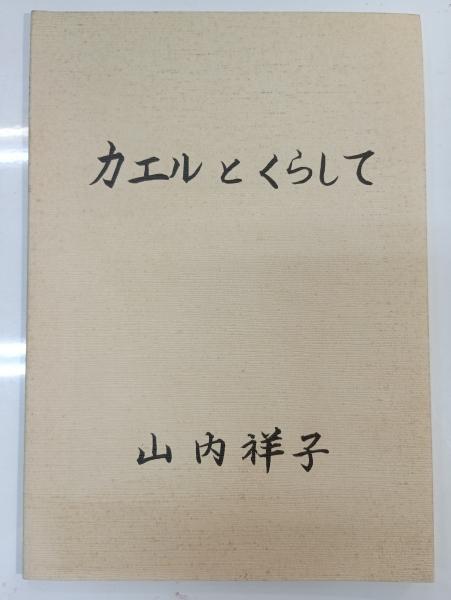 カエルとくらして
山内祥子